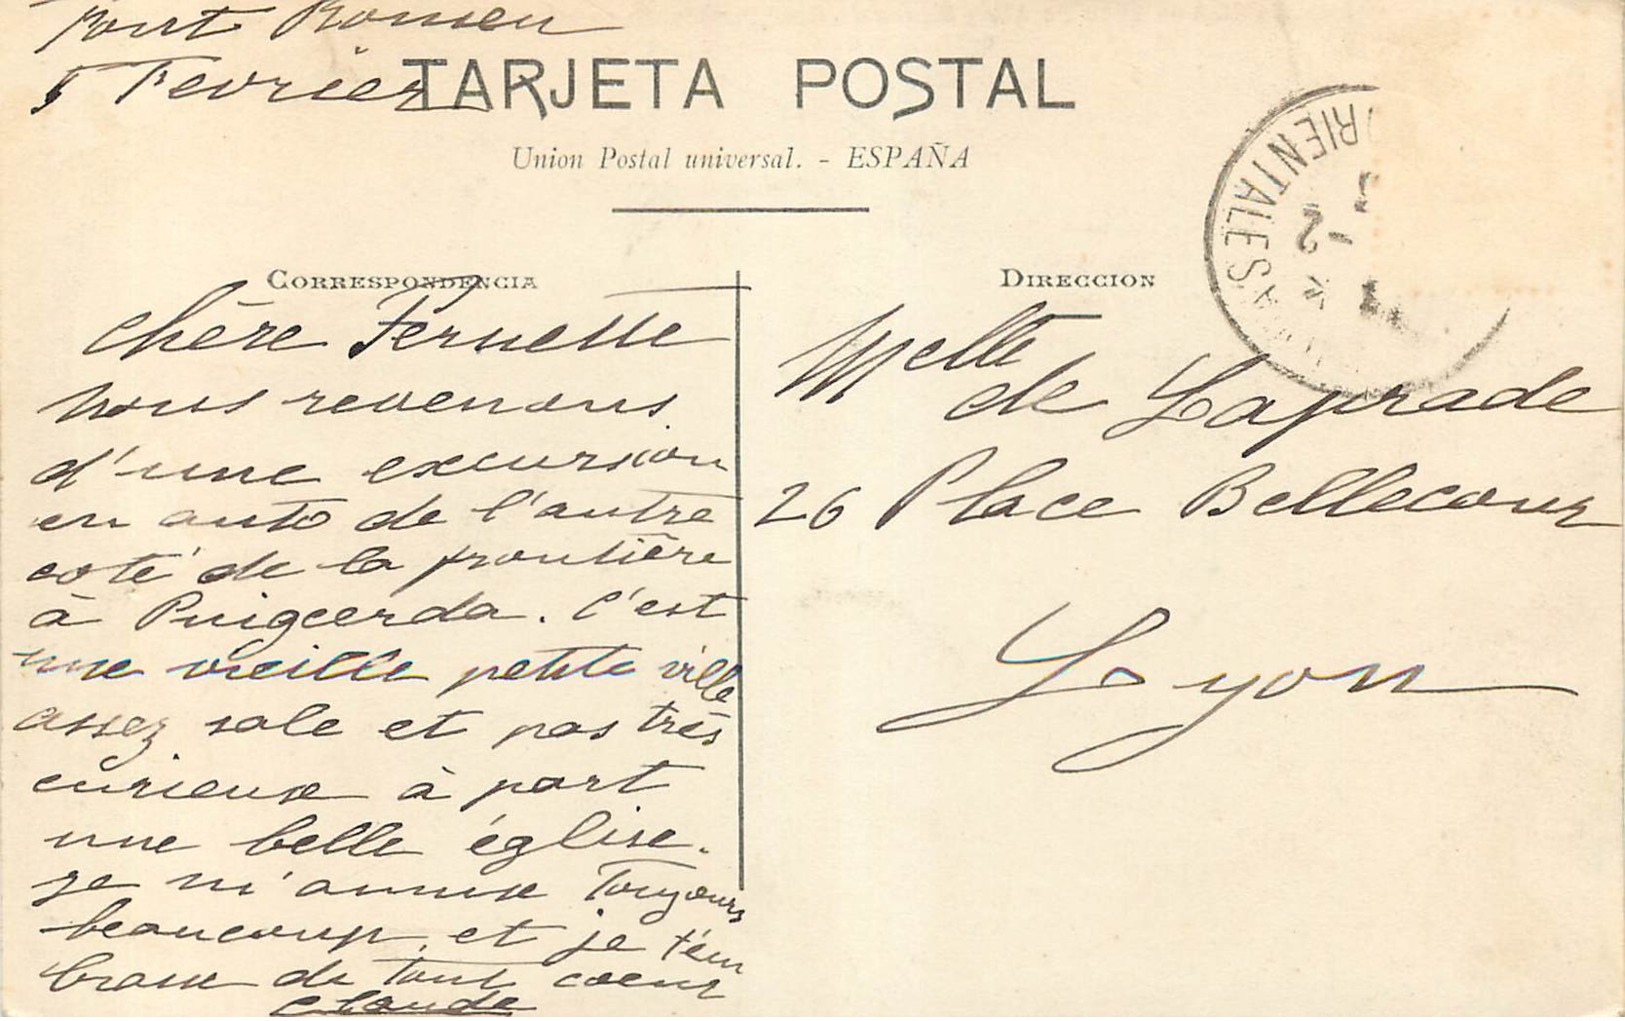 Font Romeu
5 Fevrier
TARJETA POSTAL
Union Postal universal. - ESPAÑA
CORRESPONDENCIA
Chère Fernette
nous revenons
d'une excursion
en auto de l'autre
coté de la frontière
à Puigcerda. C'est
une vieille petite ville
assez sale et pas très
curieuse à part
une belle église.
je m'amuse toujours
beaucoup, et je t'em
brasse de tout coeur
Claude
DIRECCION
Melle
de Laprade
26 Place Bellecour
Lyon
ORIENTALES